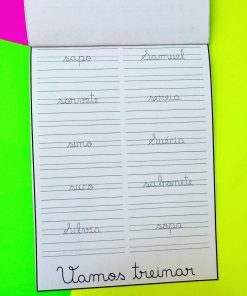 sapo Samuel
sorvete sereia
sino Suécia
suco sabonete
Sílvia sopa
Vamos treinar